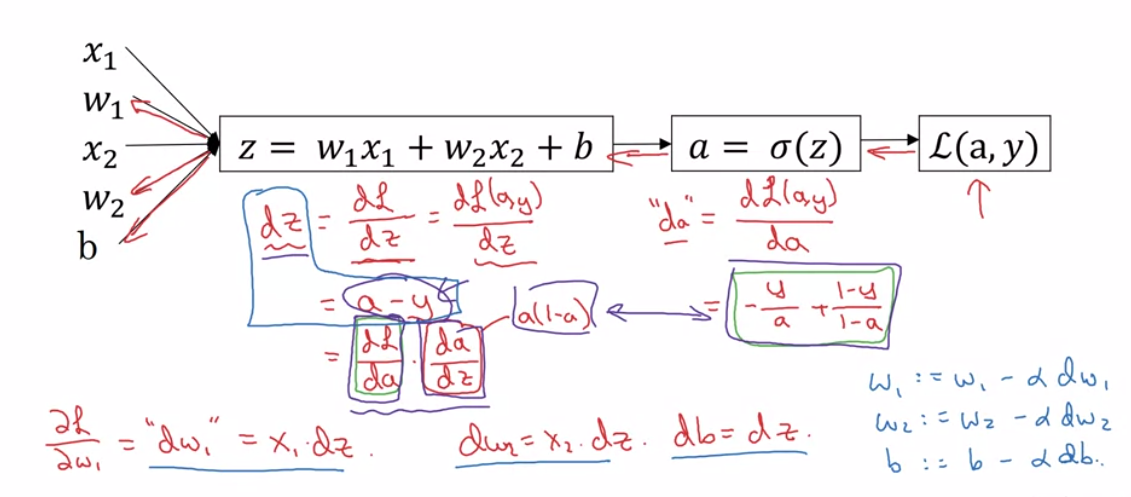 x₁
w₁
x₂
w₂
b
z = w₁x₁ + w₂x₂ + b
a = σ(z)
ℒ(a, y)
dz = dℒ/dz = dℒ(a,y)/dz
"da" = dℒ(a,y)/da
= a - y
= dℒ/da · da/dz
a(1-a)
= -y/a + (1-y)/(1-a)
∂ℒ/∂w₁ = "dw₁" = x₁·dz.
dw₂ = x₂·dz.
db = dz.
w₁ := w₁ - α dw₁
w₂ := w₂ - α dw₂
b := b - α db.